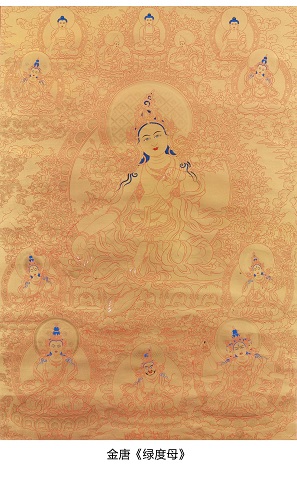 金唐《绿度母》